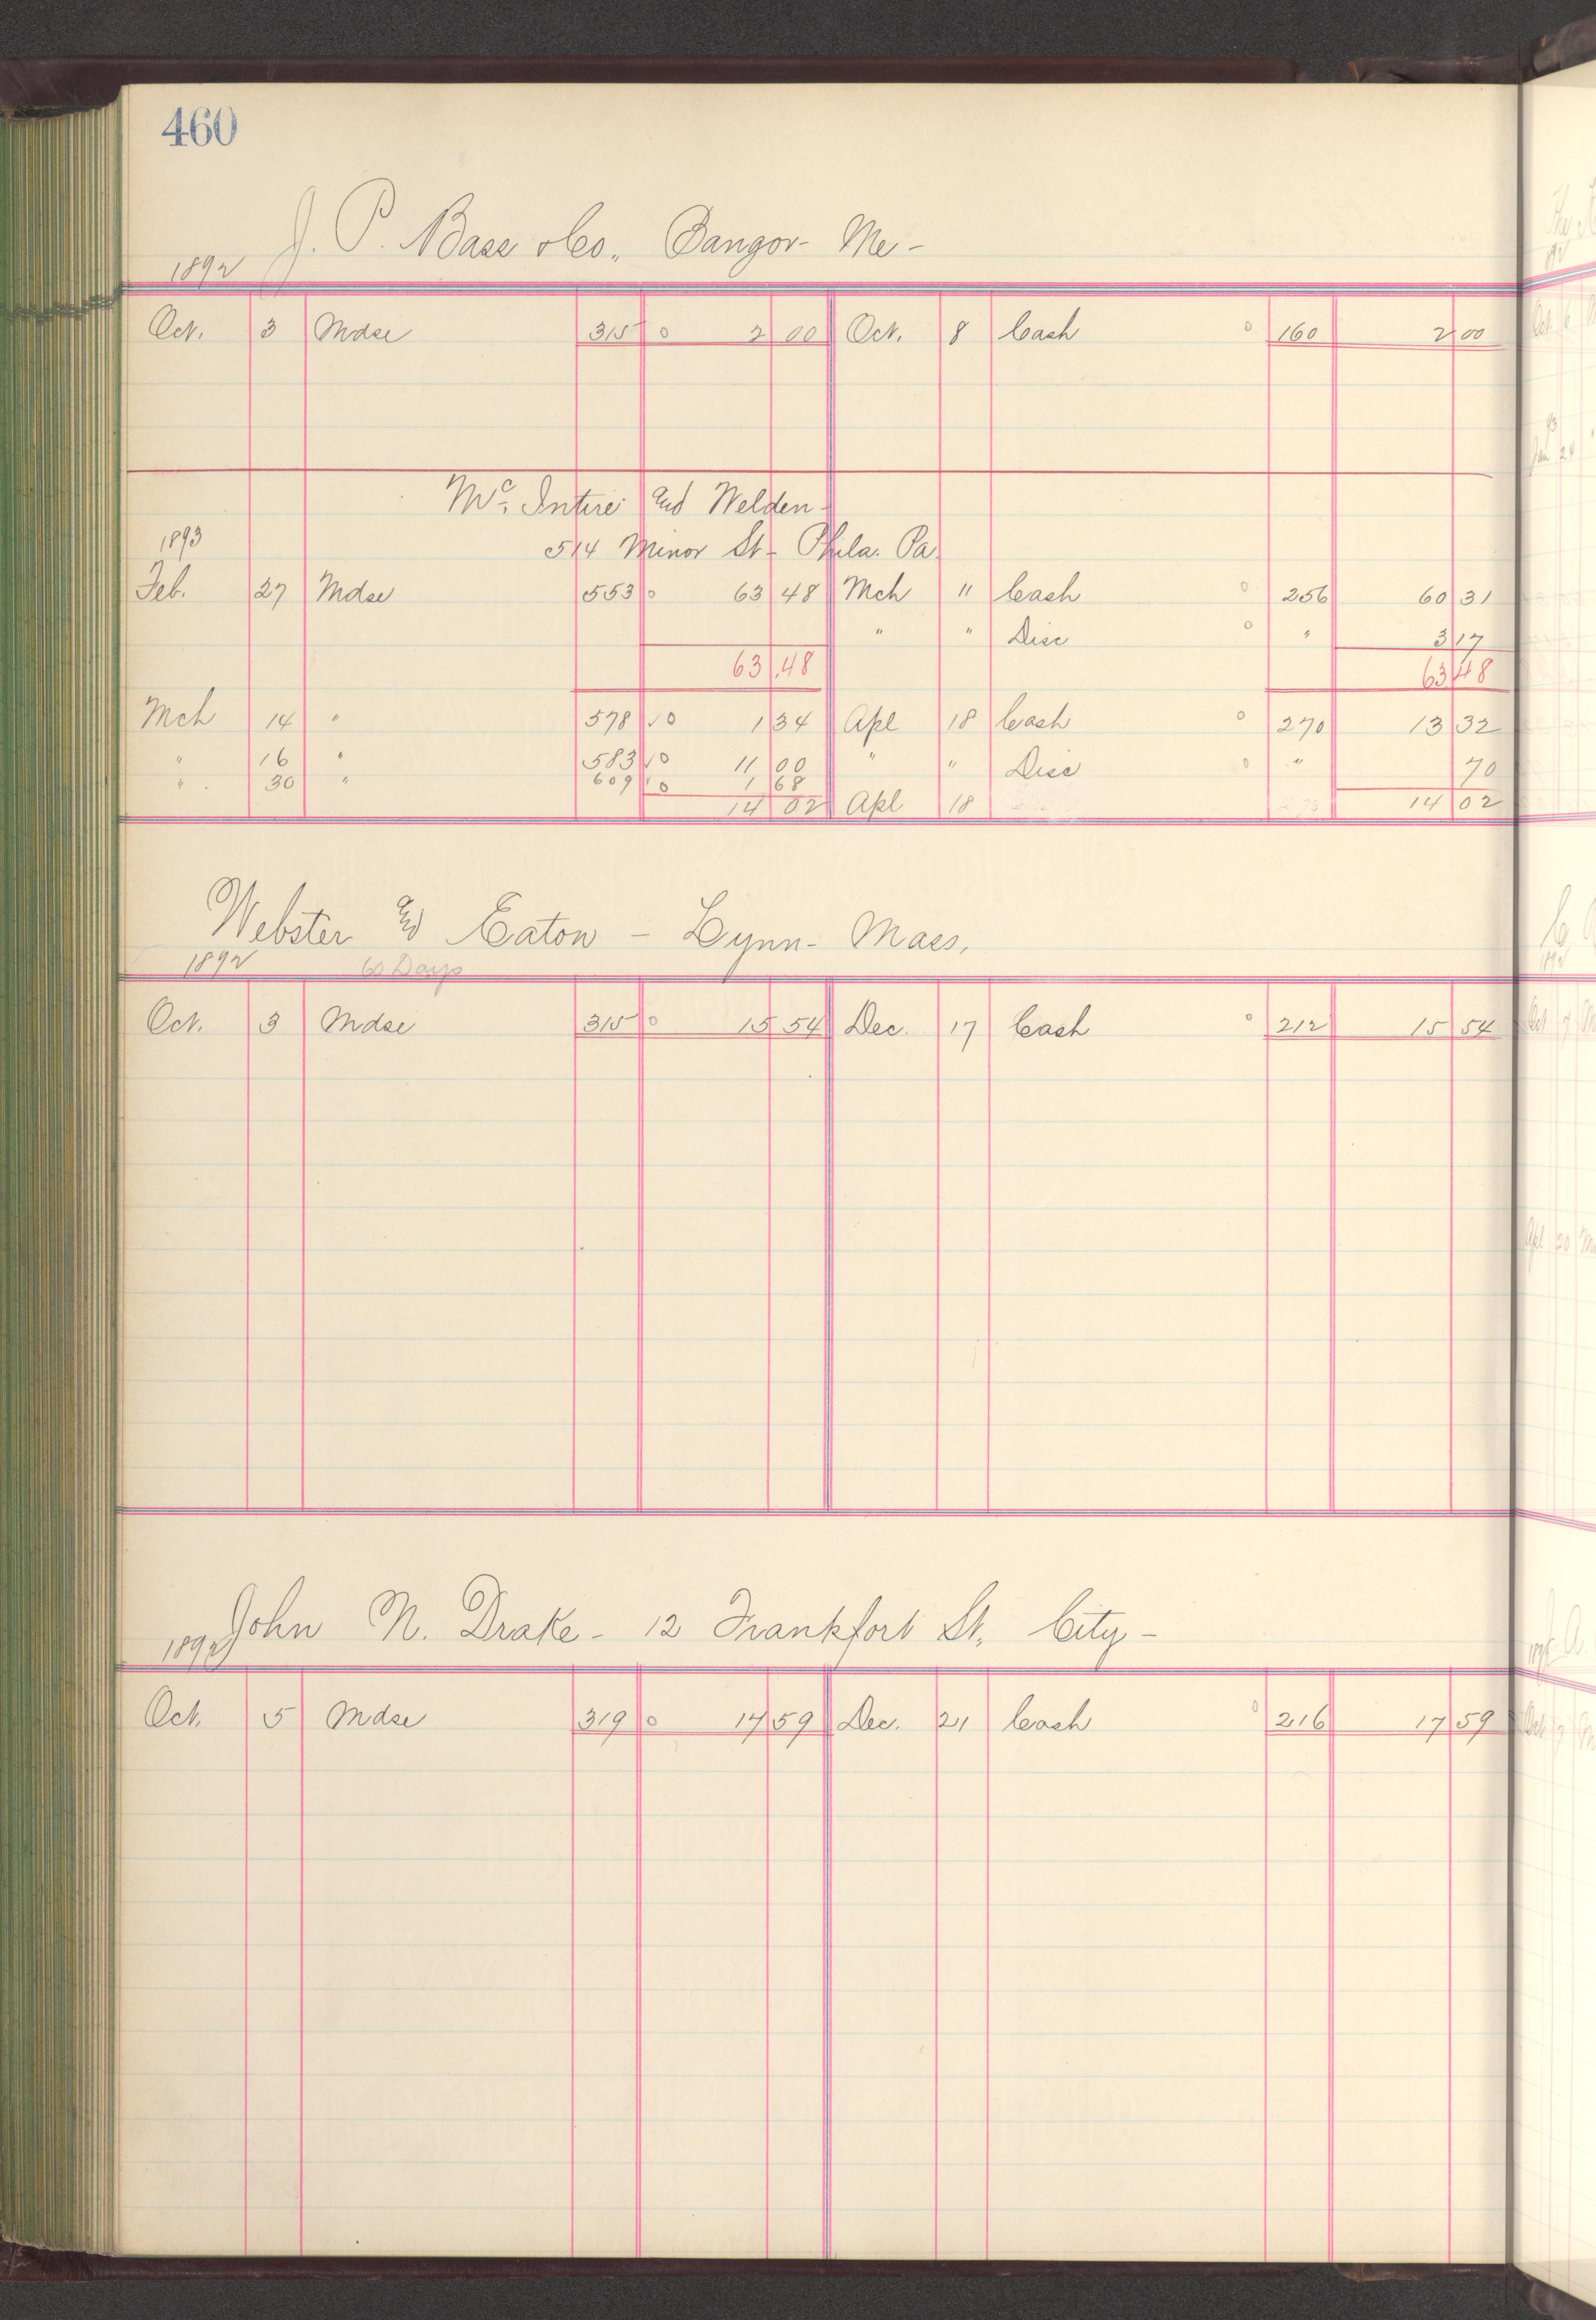 460
J. P. Bass & Co., Bangor- Me-
1892
Oct. 3 Mdse 315 0 2 00 Oct. 8 Cash 0 160 2 00
Mc. Intire and Welden-
1893 514 Minor St- Phila. Pa.
Feb. 27 Mdse 553 0 63 48 Mch " Cash 0 256 60 31
" " Disc 0 " 3 17
63.48 63 48
Mch 14 " 578 10 1 34 Apl 18 Cash 0 270 13 32
" 16 " 583 10 11 00 " " Disc 0 " 70
" 30 " 609 10 1 68
14 02 Apl 18 14 02
Webster and Eaton - Lynn- Mass.
1892 60 Days
Oct. 3 Mdse 315 0 15 54 Dec. 17 Cash 0 212 15 54
John N. Drake- 12 Frankfort St. City-
1892
Oct. 5 Mdse 319 0 17 59 Dec. 21 Cash 0 216 17 59